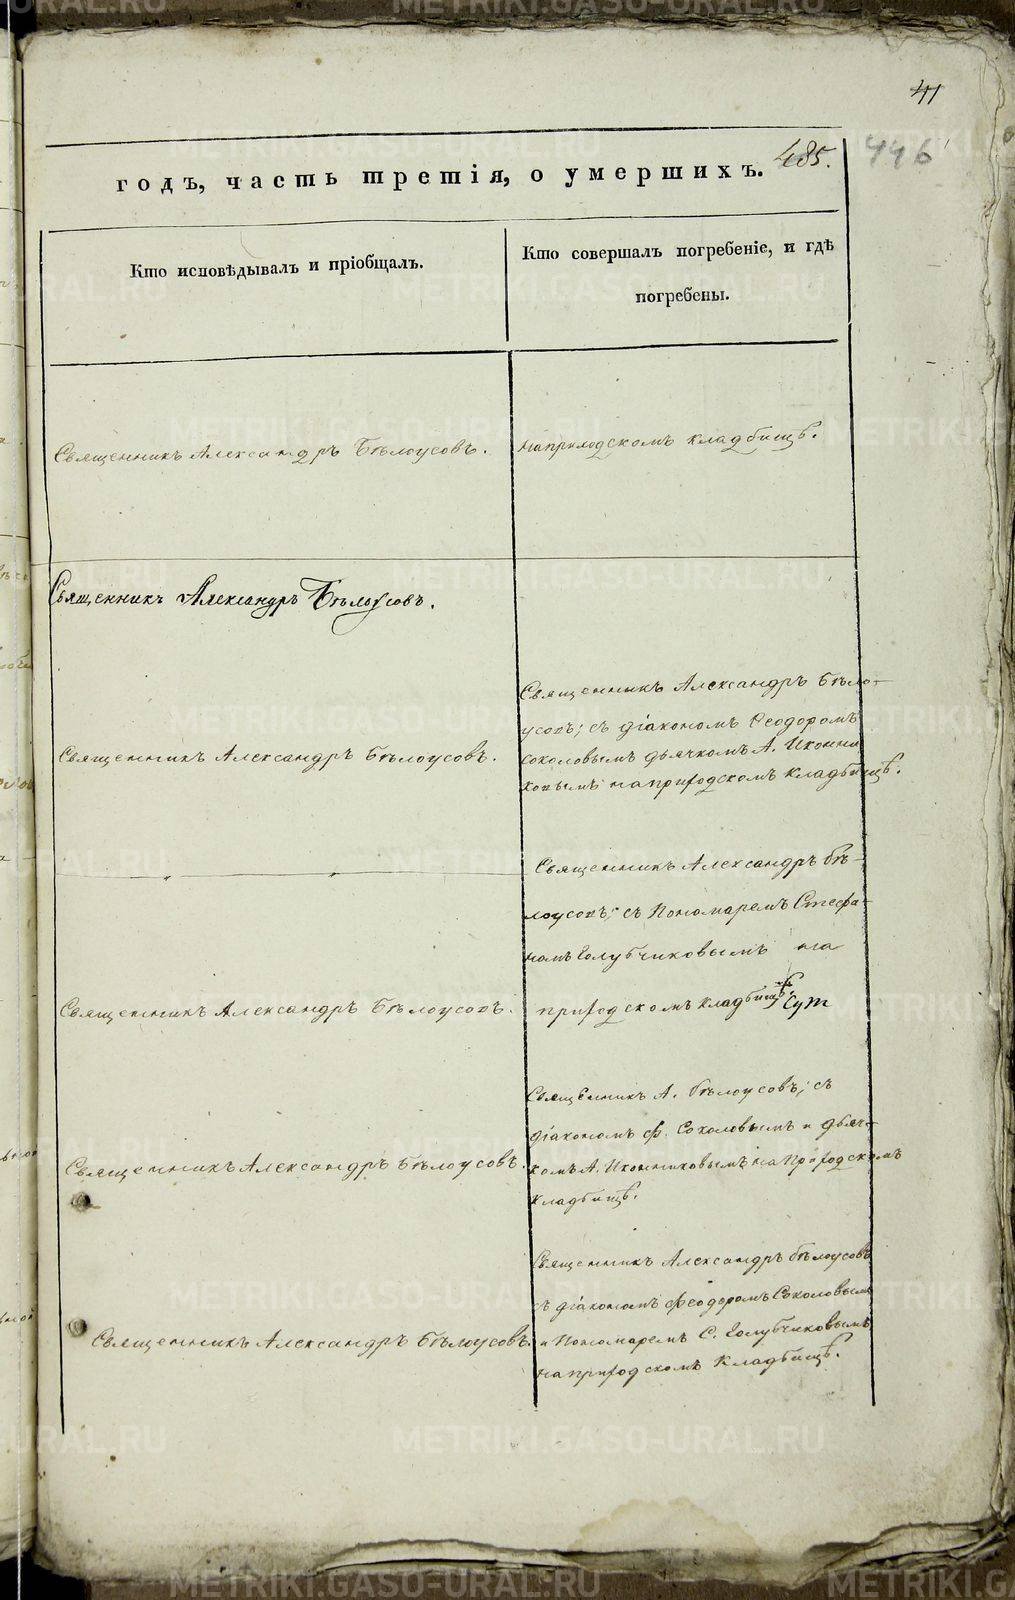 41
485.
446
годъ, часть третія, о умершихъ.
Кто исповѣдывалъ и пріобщалъ.
Кто совершалъ погребеніе, и гдѣ
погребены.
Священникъ Александръ Бѣлоусовъ.
на приходскомъ кладбищѣ.
Священникъ Александръ Бѣлоусовъ.
Священникъ Александръ Бѣло-
усовъ; съ діакономъ Ѳеодоромъ
Соколовымъ дьячкомъ А. Иконни
ковымъ на приходскомъ кладбищѣ.
Священникъ Александръ Бѣлоусовъ.
Священникъ Александръ Бѣ-
лоусовъ; съ Пономаремъ Стефа-
номъ Голубчиковымъ на
приходскомъ кладбищѣ.
Священникъ Александръ Бѣлоусовъ.
Священникъ А. Бѣлоусовъ; съ
діакономъ Ф. Соколовымъ и дьяч-
комъ А. Иконниковымъ на Приходскомъ
кладбищѣ.
Священникъ Александръ Бѣлоусовъ.
Священникъ Александръ Бѣлоусовъ
съ діакономъ Феодоромъ Соколовым
и Пономаремъ С. Голубчиковымъ
на приходскомъ Кладбищѣ.
Священникъ Александръ Бѣлоусовъ.
METRIKI.GASO-URAL.RU